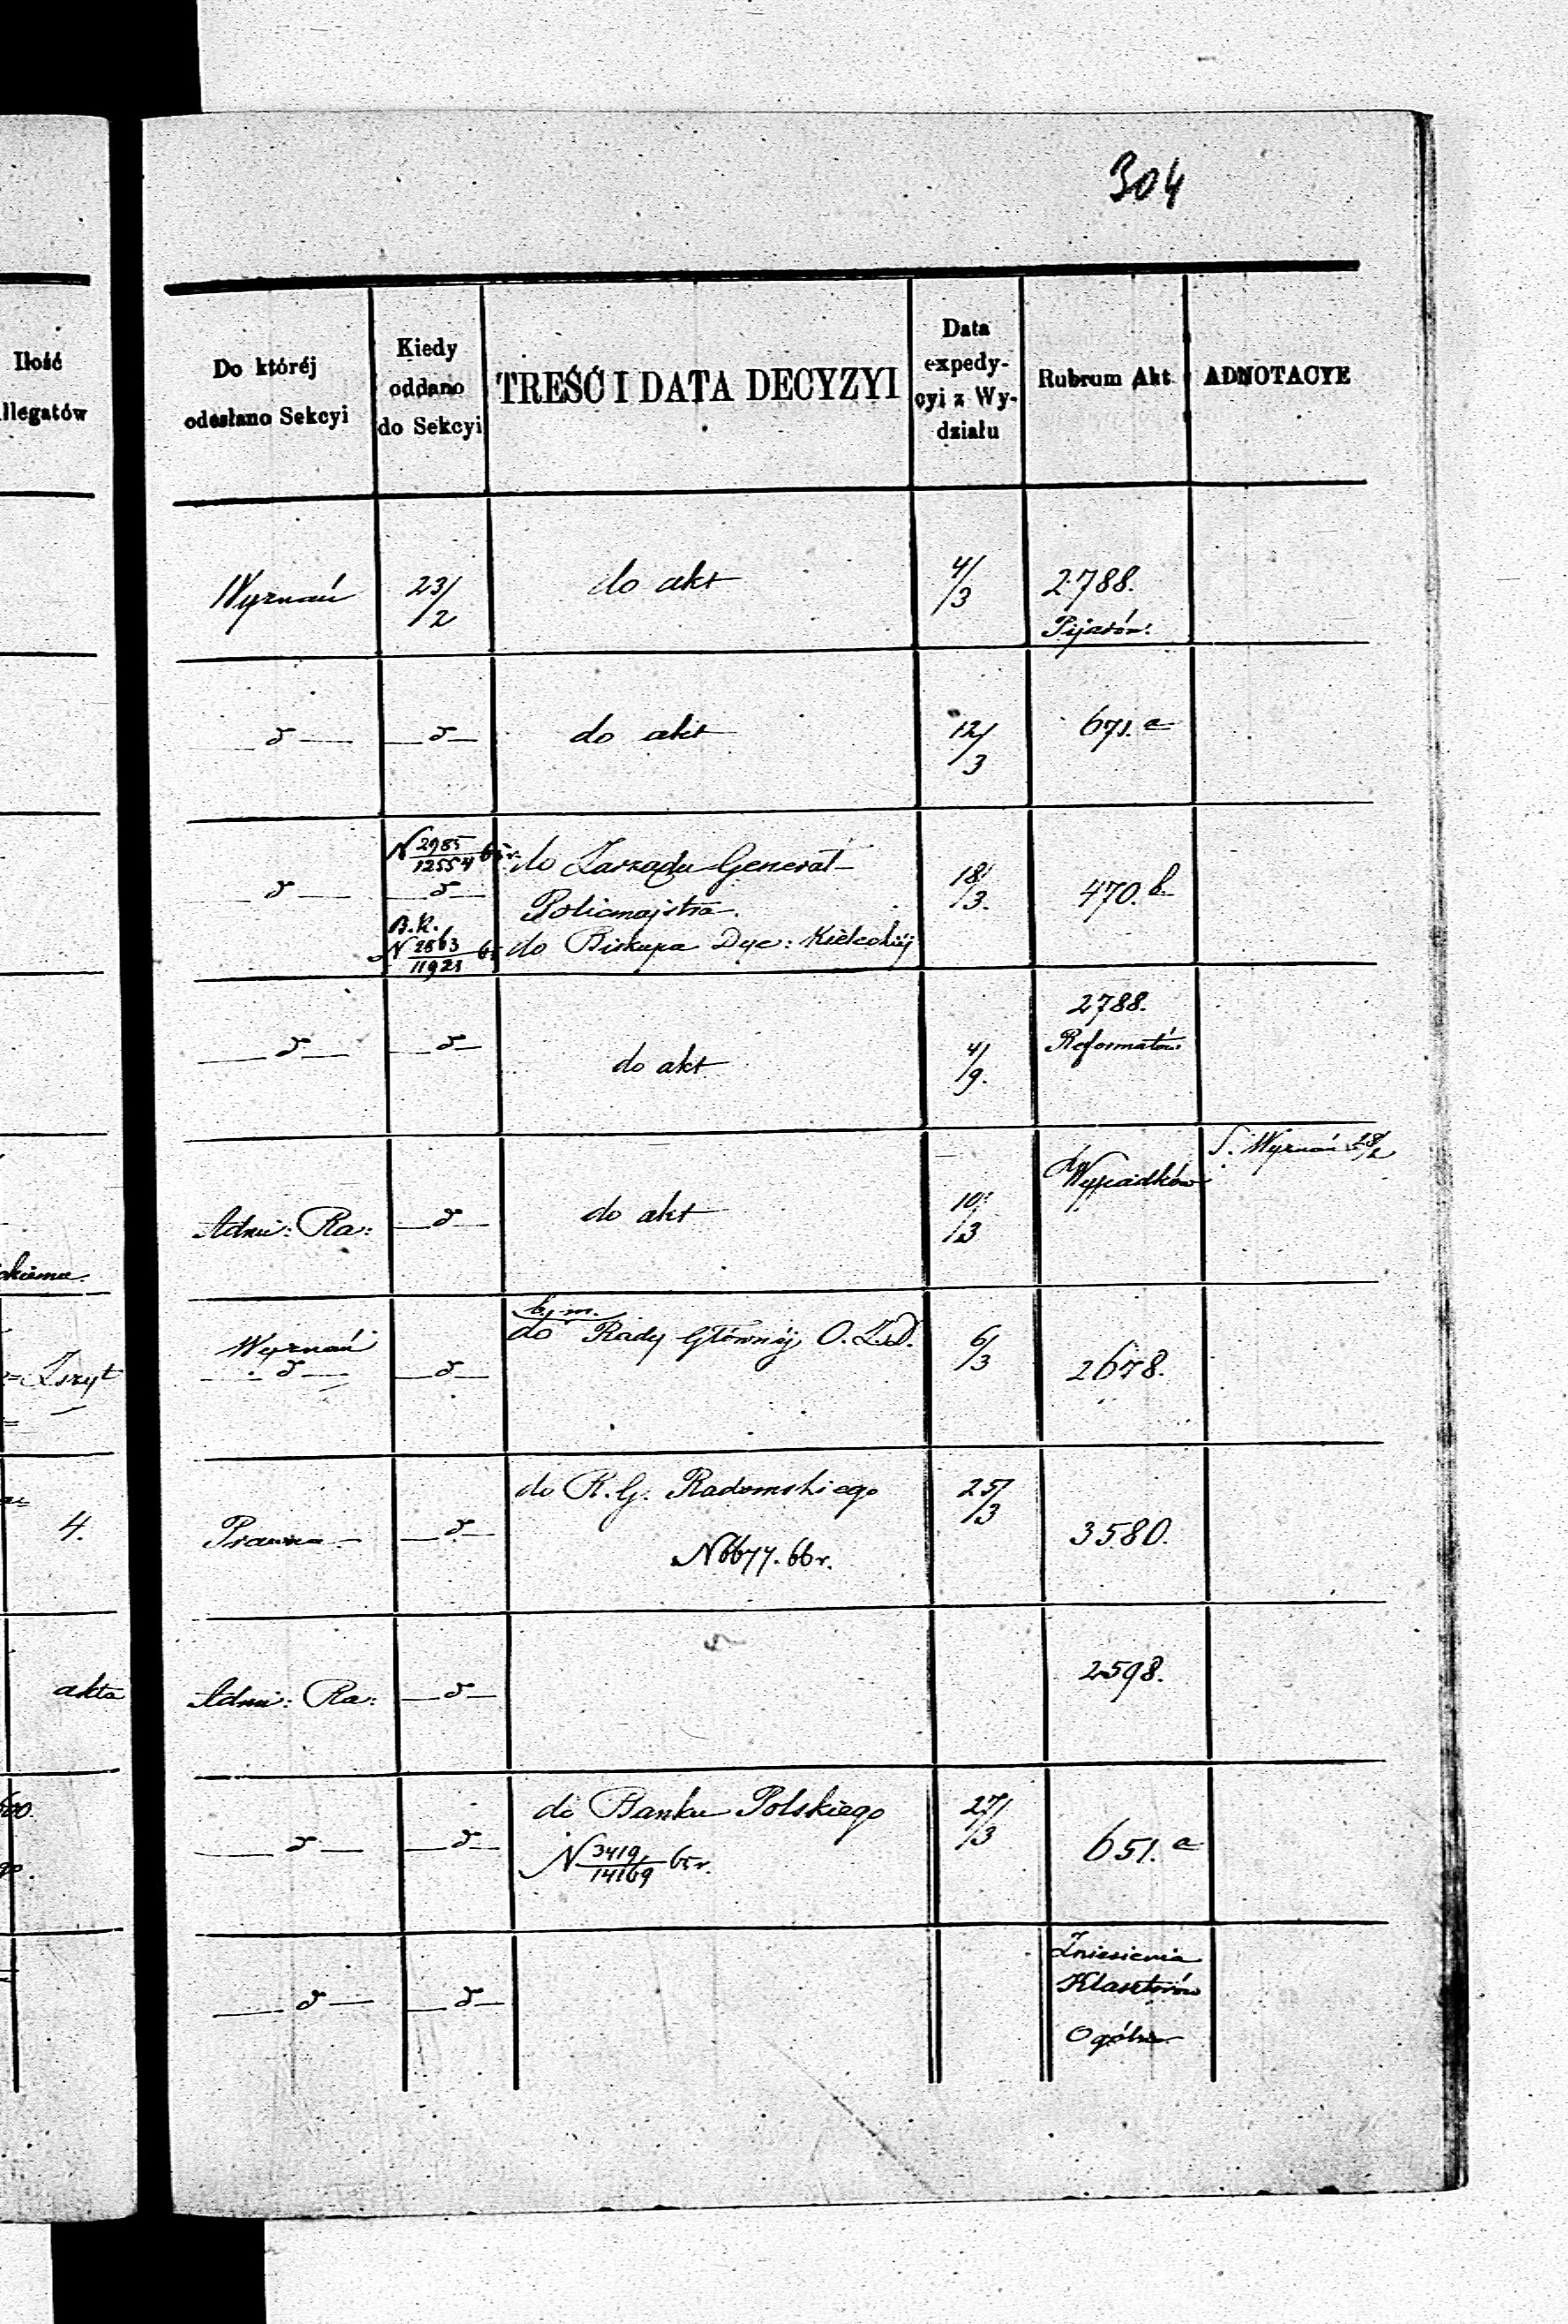 304
Ilość
llegatów
Do któréj
odesłano Sekcyi
Kiedy
oddano
do Sekcyi
TREŚĆ I DATA DECYZYI
Data
expedy-
cyi z Wy-
działu
Rubrum Akt
ADNOTACYE
Wyznań 23/2 do akt 4/3 2788.
Pijarów.
— d — — d — do akt 12/3 671. a
N 2985/12554 65 r. do Zarządu Generał-
— d — — d — Policmajstra. 18/3. 470. b.
B.K.
N 2863/11921 65 do Biskupa Dyc: Kieleckiéj
2788.
Reformatów
— d — — d — do akt 4/9.
Wypadków S. Wyznań 28/2
Admi: Ra: — d — do akt 10/3
skiemu.
b. j. m.
Wyznań do Rady Głównéj O. Z. D. 6/3
Zszyt — d — — d — 2678.
do R. G. Radomskiego 25/3
4. Prawna — — d — 3580.
N 6677. 66 r.
akta Admi: Ra: — d — 2598.
do Banku Polskiego 27/3
— d — — d — 651. a
N 3419/14169 65 r.
Zniesienia
Klasztorów
— d — — d —
Ogólne